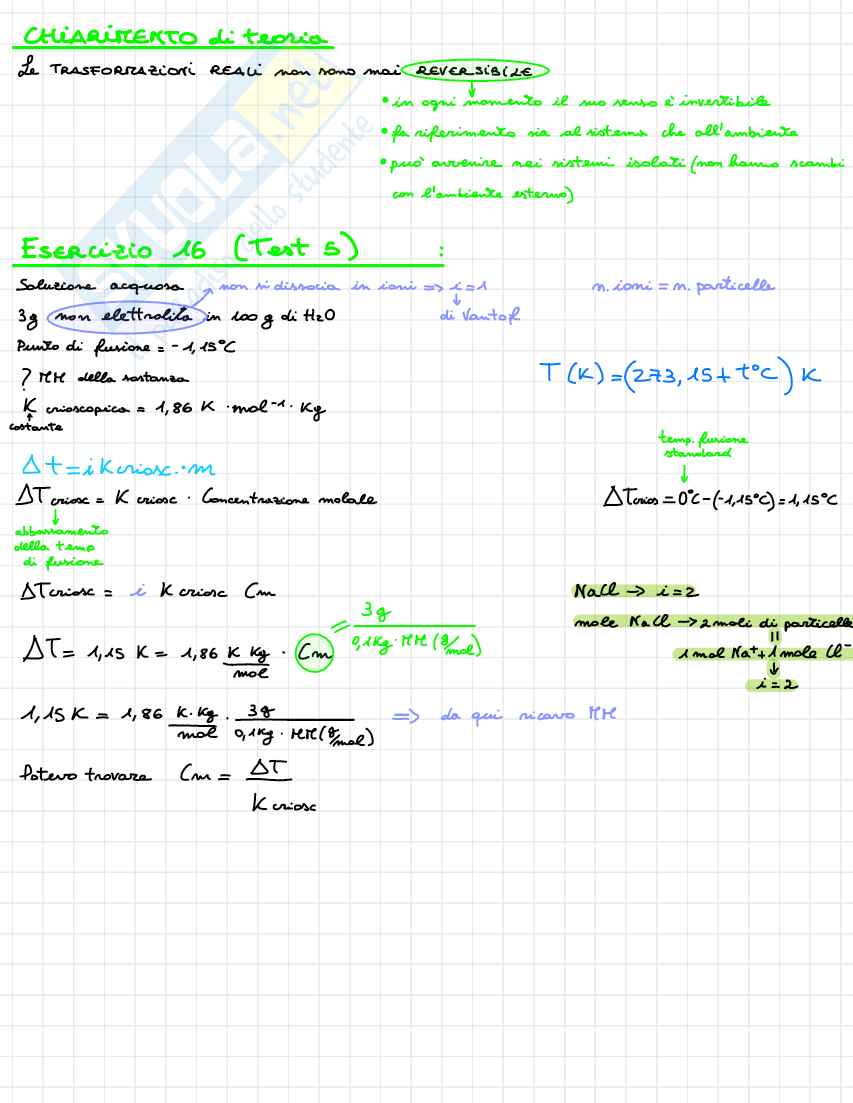 CHIARIMENTO di teoria
Le TRASFORMAZIONI REALI non sono mai REVERSIBILE
• in ogni momento il suo senso è invertibile
• fa riferimento sia al sistema che all'ambiente
• può avvenire nei sistemi isolati (non hanno scambi
con l'ambiente esterno)
Esercizio 16 (Test 5) :
Soluzione acquosa → non si dissocia in ioni => i=1 n. ioni = n. particelle
3g non elettrolita in 100 g di H2O di Vantoff
Punto di fusione = -1,15°C
? MM della sostanza
T (K) = (273,15 + t°C) K
K crioscopica = 1,86 K · mol⁻¹ · Kg
↑
costante
temp. fusione
standard
↓
Δt = i K criosc. · m
ΔTcriosc = K criosc · Concentrazione molale ΔTcrios = 0°C - (-1,15°C) = 1,15°C
↓
abbassamento
della temp
di fusione
ΔTcriosc = i K criosc Cm NaCl → i=2
mole NaCl → 2 moli di particelle
=
1 mol Na⁺ + 1 mole Cl⁻
↓
i=2
ΔT = 1,15 K = 1,86 K Kg/mol · Cm = 3g/0,1Kg · MM (g/mol)
1,15 K = 1,86 K·Kg/mol · 3g/0,1Kg · MM (g/mol) => da qui ricavo MM
Potevo trovare Cm = ΔT/K criosc
SKUOLA.net
dello studente